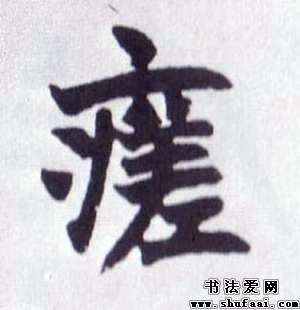 瘥
书法爱网
www.shufaai.com